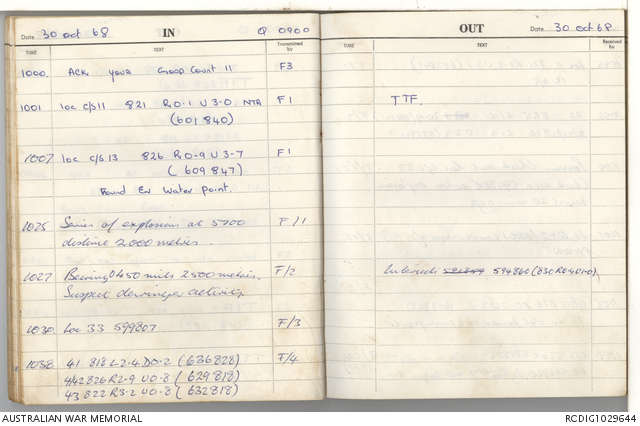 Date 30 Oct 68 IN Q 0900
TIME TEXT Transmitted by
1000 Ack your Group Count 11 F3
1001 loc c/s 11 821 R0-1 U3-0 NTR F1
(601 840)
1007 loc c/s 13 826 R0-9 U3-7 F1
(609 847)
Found En Water Point.
1025 Series of explosions at 5700 F/1
distance 2000 metres.
1027 Bearing 0450 mils 2500 metres. F/2
Suspect activity
1030 Loc 33 599807 F/3
1038 41 818 L2-4 D0-2 (636828) F/4
42 826 R2-9 U0-8 (629818)
43 822 R3-2 U0-8 (632818)
OUT Date 30 Oct 68
TIME TEXT Received by
TTF.
594860
AUSTRALIAN WAR MEMORIAL RCDIG1029644